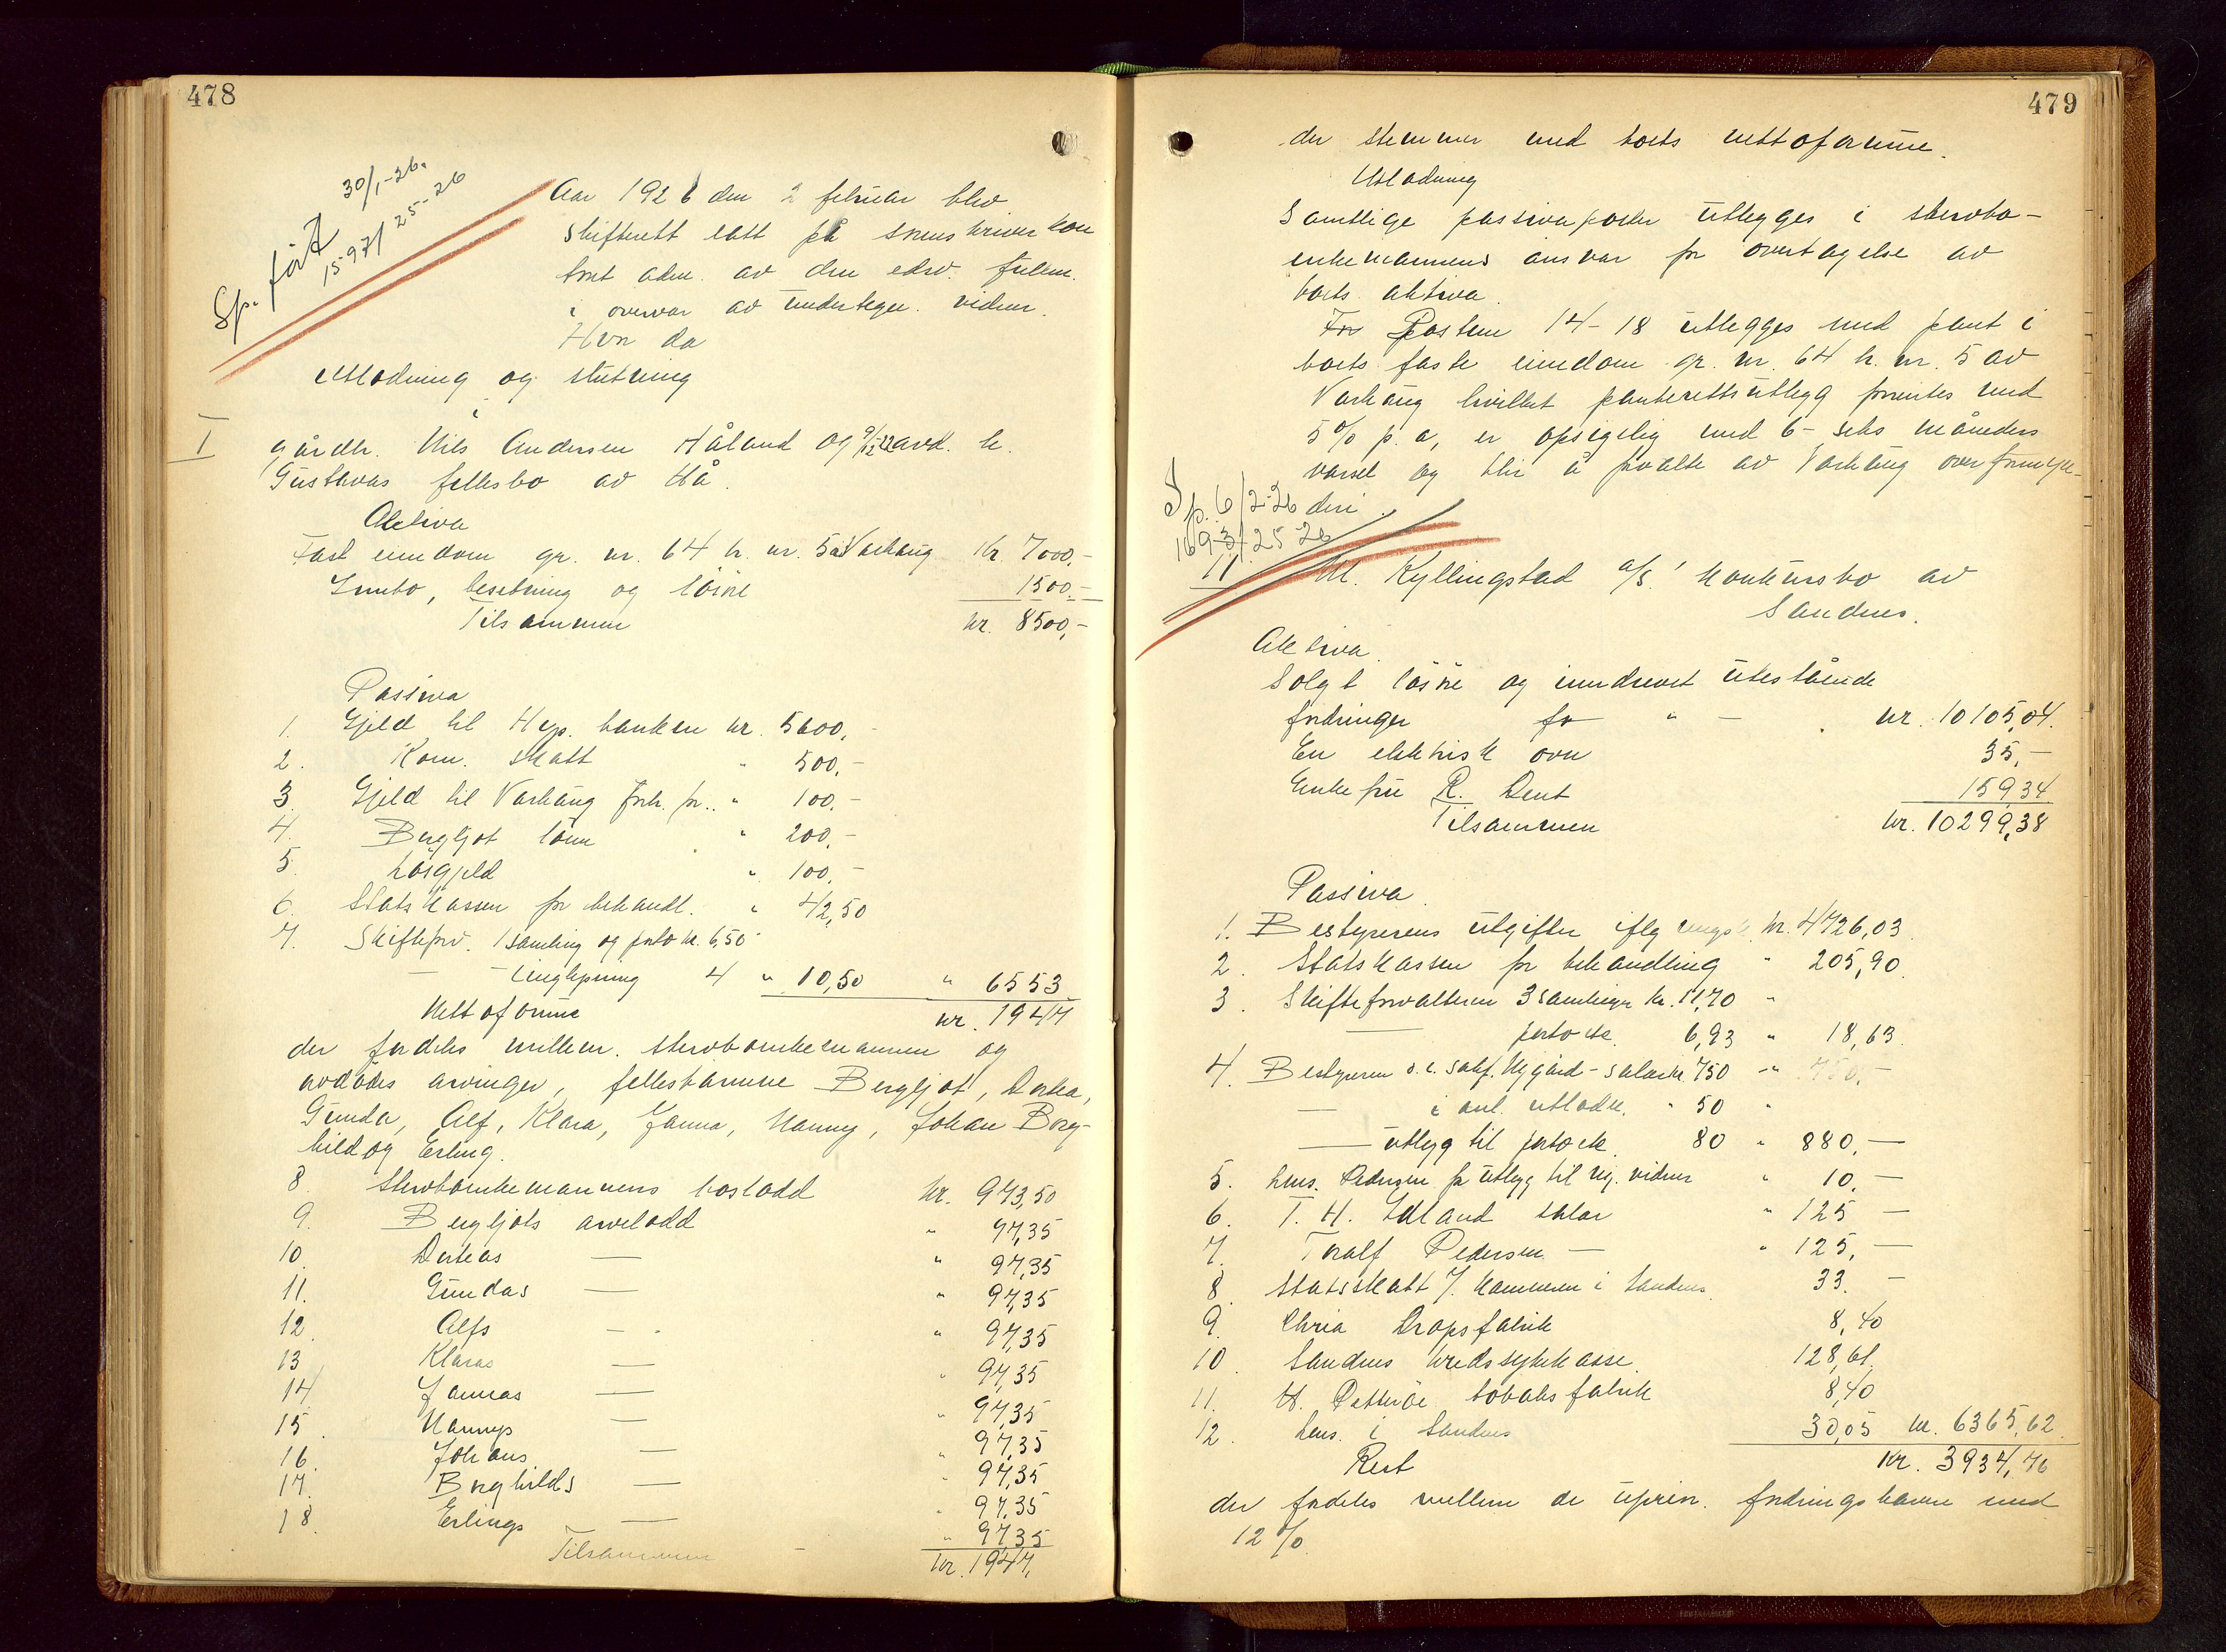 478
Sp. ført 30/1-26.
1597/25-26
Aar 1926 den 2 februar blev
skifterett satt på sorenskriverkon
toret adm. av den edsv. fullm.
i overvær av undertegn. vidner.
Hvor da
Utlodning og slutning
i
I
gårdbr. Nils Andersen Håland og avd. h.
Gustavas fellesbo av Hå.
Aktiva
Fast eiendom gr. nr. 64 br. nr. 5 av Varhaug Kr. 7000,-
Innbo, besetning og løsøre 1500.-
Tilsammen kr. 8500,-
Passiva
1. Gjeld til Hyp. banken kr. 5600,-
2. Kom. skatt " 500,-
3. Gjeld til Varhaug forb. for. " 100,-
4. Bergljot lønn " 200,-
5. Løsgjeld " 100,-
6. Statskassen for behandl. " 42,50
7. Skifteforv. 1 samling og porto kr. 6,50
— — 4 " 10,50 " 6553
Nettoformue kr. 1947
der fordeles mellem stervboenkemannen og
avdødes arvinger, fellesbarnene Bergljot, Dorthea,
Gunda, Alf, Klara, Janna, Nanny, Johan Borg-
hild og Erling.
8. Stervboenkemannens boslodd kr. 973,50
9. Bergljots arvelodd " 97,35
10. Dortheas — " 97,35
11. Gundas — " 97,35
12. Alfs — " 97,35
13 Klaras — " 97,35
14 Jannas — " 97,35
15. Nannys — " 97,35
16. Johans — " 97,35
17. Borghilds — " 97,35
18. Erlings — " 97,35
Tilsammen - kr. 1947,
479
der stemmer med boets nettoformue.
Utlodning
Samtlige passivaposter utlegges i stervbo-
enkemannens ansvar for overtagelse av
boets aktiva.
For Postene 14-18 utlegges med pant i
boets faste eiendom gr. nr. 64 br. nr. 5 av
Varhaug hvilket panterettsutlegg forrentes med
5% p. a, er opsigelig med 6- seks måneders
varsel og blir å forvalte av Varhaug overformyn-
deri.
Sp. 6/2-26
1693/25-26
II
M. Kyllingstad A/S' konkursbo av
Sandnes.
Aktiva.
Solgt løsøre og inndrevet utestående
fordringer for " - kr. 10105,04.
En elektrisk ovn 35,-
Enkefru R. Dent 159,34
Tilsammen kr. 10299,38
Passiva.
1. Bestyrerens utgifter iflg regnsk. kr. 4726,03
2. Statskassen for behandling " 205,90
3. Skifteforvalteren 3 samlinger kr. 11,70 "
— porto etc. 6,93 " 18,63
4. Bestyreren o.r. sakf. Nygård - salær kr. 750 "
— i anl. utlodn. " 50 "
— utlegg til porto etc. 80 " 880,-
5. Lens. Pedersen for utlegg til reg. vidner " 10,-
6. T. H. Idland salær " 125 -
7. Toralf Pedersen — " 125,-
8. Statsskatt J. Kommunen i Sandnes. 33. -
9. Chria Dropsfabrik 8,40
10. Sandnes kredssykekasse. 128,61.
11. H. Petterøe tobaksfabrik 8,40
12. Lens. i Sandnes 30,05 kr. 6365,62
Rest kr. 3934,76
der fordeles mellem de uprior. fordringshavere med
12 %